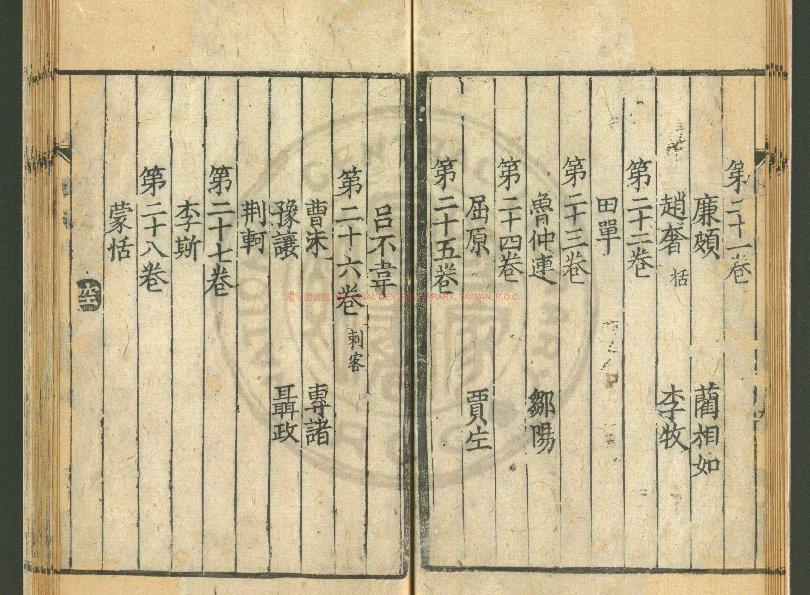 第二十一卷
廉頗 藺相如
趙奢 括 李牧
第二十二卷
田單
第二十三卷
魯仲連 鄒陽
第二十四卷
屈原 賈生
第二十五卷
呂不韋
第二十六卷 刺客
曹沬 專諸
豫讓 聶政
荆軻
第二十七卷
李斯
第二十八卷
蒙恬
NATIONAL CENTRAL LIBRARY, TAIWAN, R.O.C